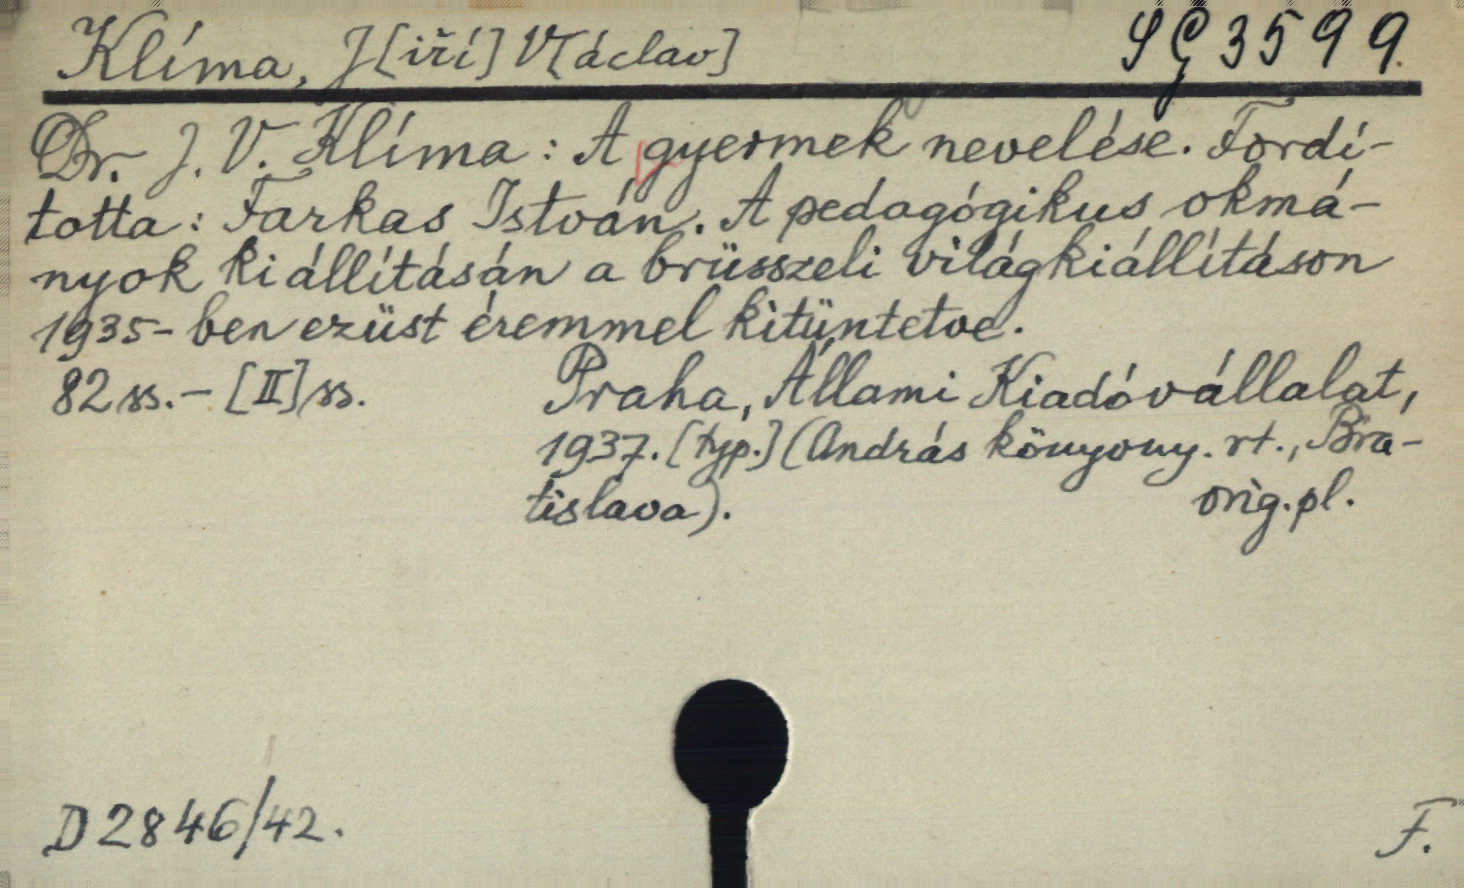 Klíma, J[iří] V[áclav] SG 3599.
Dr. J. V. Klíma: A gyermek nevelése. Fordí-
totta: Farkas István. A pedagógikus okmá-
nyok kiállításán a brüsszeli világkiállításon
1935-ben ezüst éremmel kitüntetve.
82 ss. – [II] ss. Praha, Állami Kiadóvállalat,
1937. [typ.] (András könyvny. rt., Bra-
tislava). orig. pl.
D 2846/42. F.